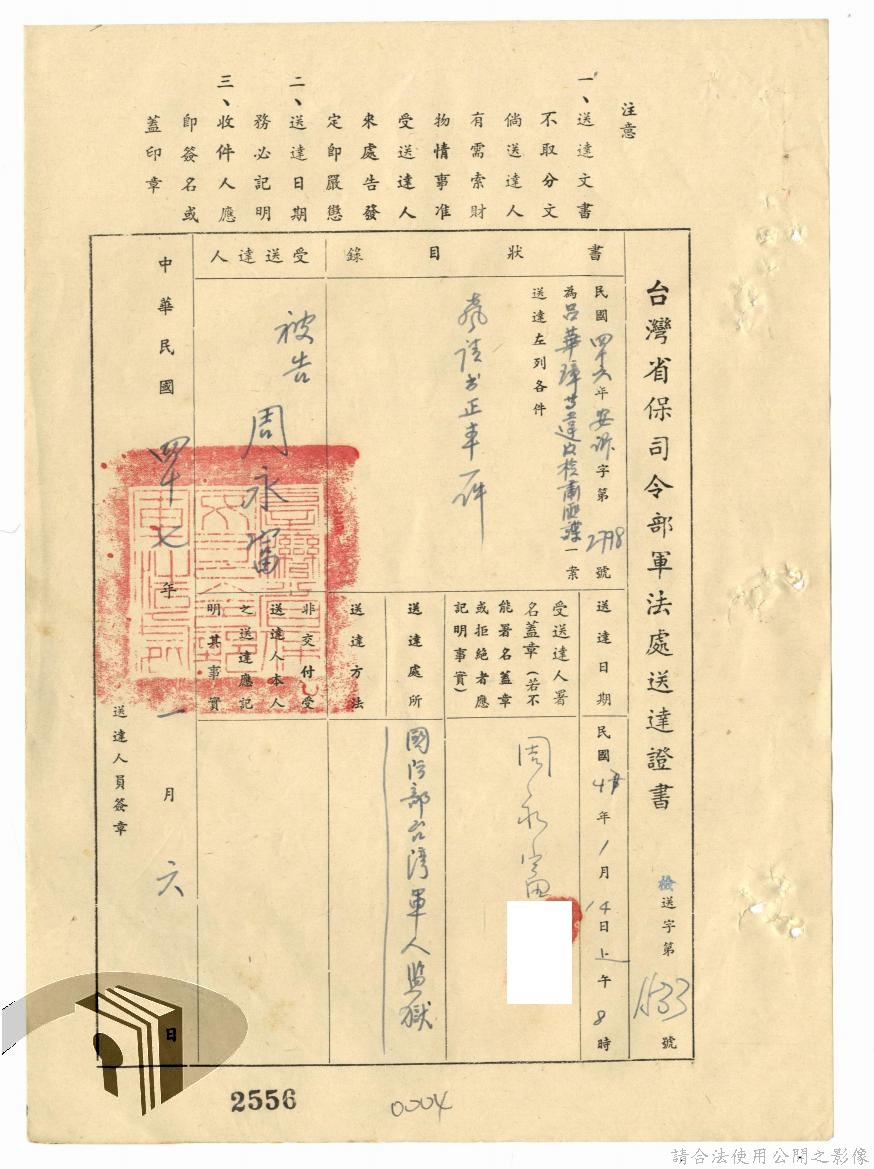 注意
一、送達文書
不取分文
倘送達人
有需索財
物情事准
受送達人
來處告發
定即嚴懲
二、送達日期
務必記明
三、收件人應
即簽名或
蓋印章
台灣省保司令部軍法處送達證書
檢送字第1533號
書狀目錄
民國四十六年安訴字第2798號
為呂華璋等違反檢肅匪諜一案
送達左列各件
聲請書正本一件
送達日期
民國47年1月14日上午8時
受送達人署
名蓋章(若不
能署名蓋章
或拒絕者應
記明事實)
周永富
送達處所
國防部台灣軍人監獄
送達方法
受送達人
被告 周永富
非交付受
送達人本人
之送達應記
明其事實
中華民國四十七年一月六日
送達人員簽章
2556
0004
請合法使用公開之影像